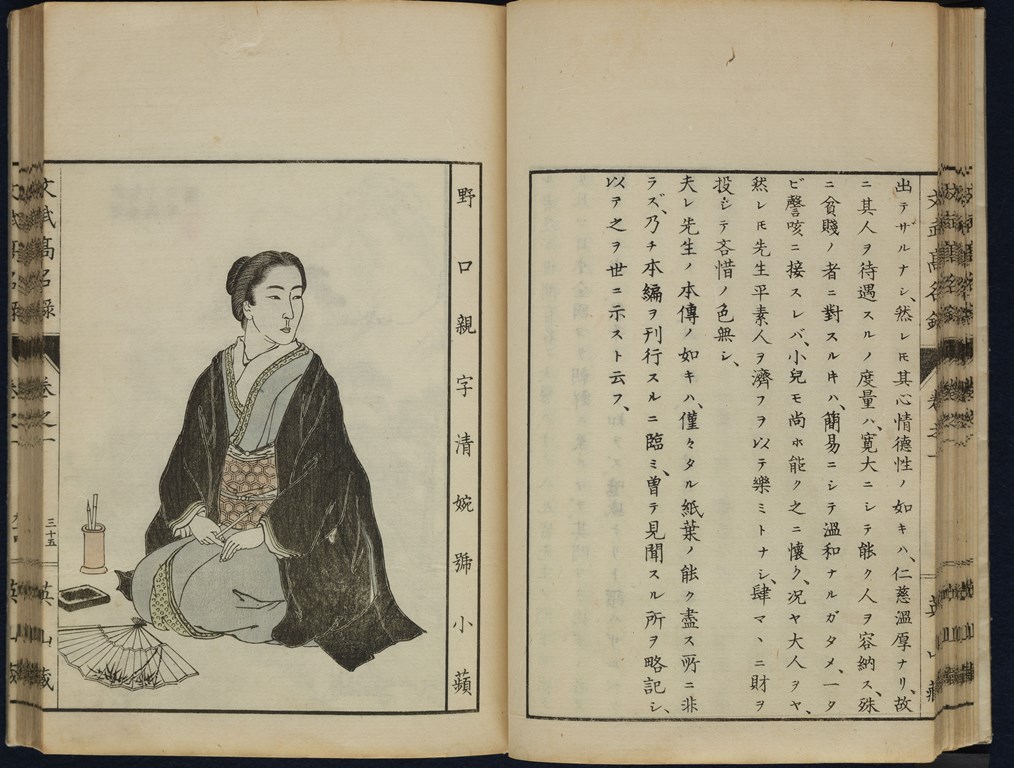 出テザルナシ、然レ𪜈其心情德性ノ如キハ、仁慈溫厚ナリ、故
ニ其人ヲ待遇スルノ度量ハ、寛大ニシテ能ク人ヲ容納ス、殊
ニ貧賤ノ者ニ對スルキハ、簡易ニシテ溫和ナルガタメ、一タ
ビ謦咳ニ接スレバ、小兒モ尚ホ能ク之ニ懷ク、況ヤ大人ヲヤ、
然レ𪜈先生平素人ヲ濟フヲ以テ樂ミトナシ、肆マヽニ財ヲ
投シテ吝惜ノ色無シ、
夫レ先生ノ本傳ノ如キハ、僅々タル紙葉ノ能ク盡ス所ニ非
ラズ、乃チ本編ヲ刊行スルニ臨ミ、曾テ見聞スル所ヲ略記シ、
以テ之ヲ世ニ示スト云フ、
野口親字清婉號小蘋
文武高名錄
卷之一
三十五
英山藏